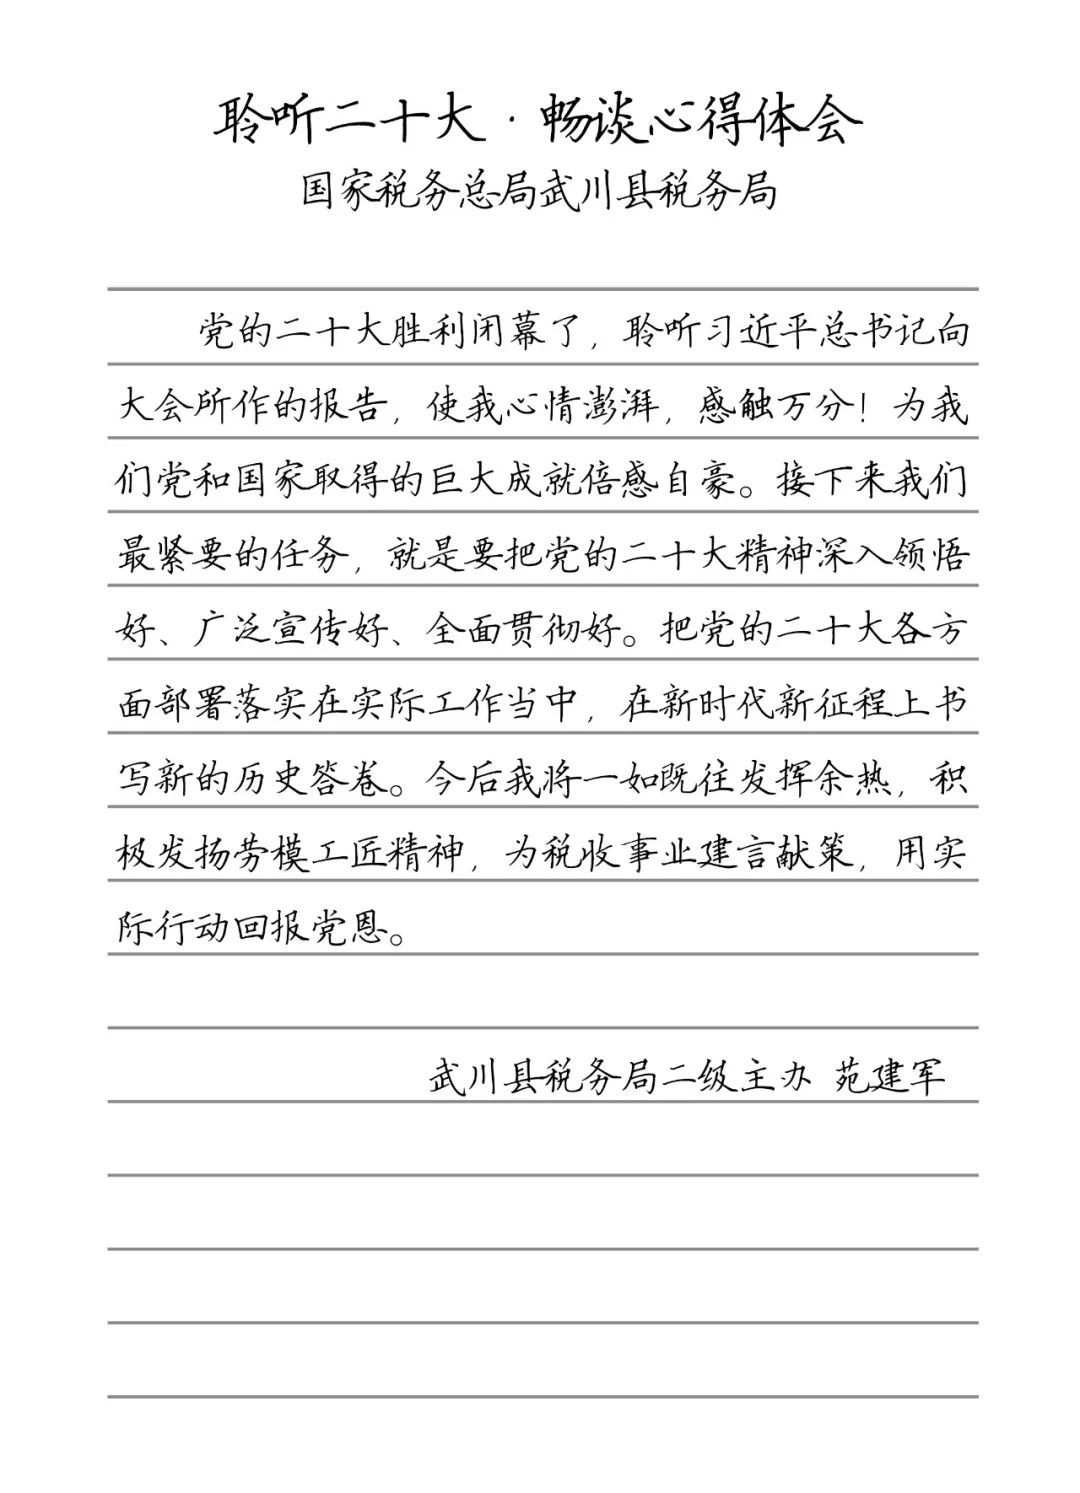 聆听二十大·畅谈心得体会
国家税务总局武川县税务局
党的二十大胜利闭幕了，聆听习近平总书记向
大会所作的报告，使我心情澎湃，感触万分！为我
们党和国家取得的巨大成就倍感自豪。接下来我们
最紧要的任务，就是要把党的二十大精神深入领悟
好、广泛宣传好、全面贯彻好。把党的二十大各方
面部署落实在实际工作当中，在新时代新征程上书
写新的历史答卷。今后我将一如既往发挥余热，积
极发扬劳模工匠精神，为税收事业建言献策，用实
际行动回报党恩。
武川县税务局二级主办 苑建军